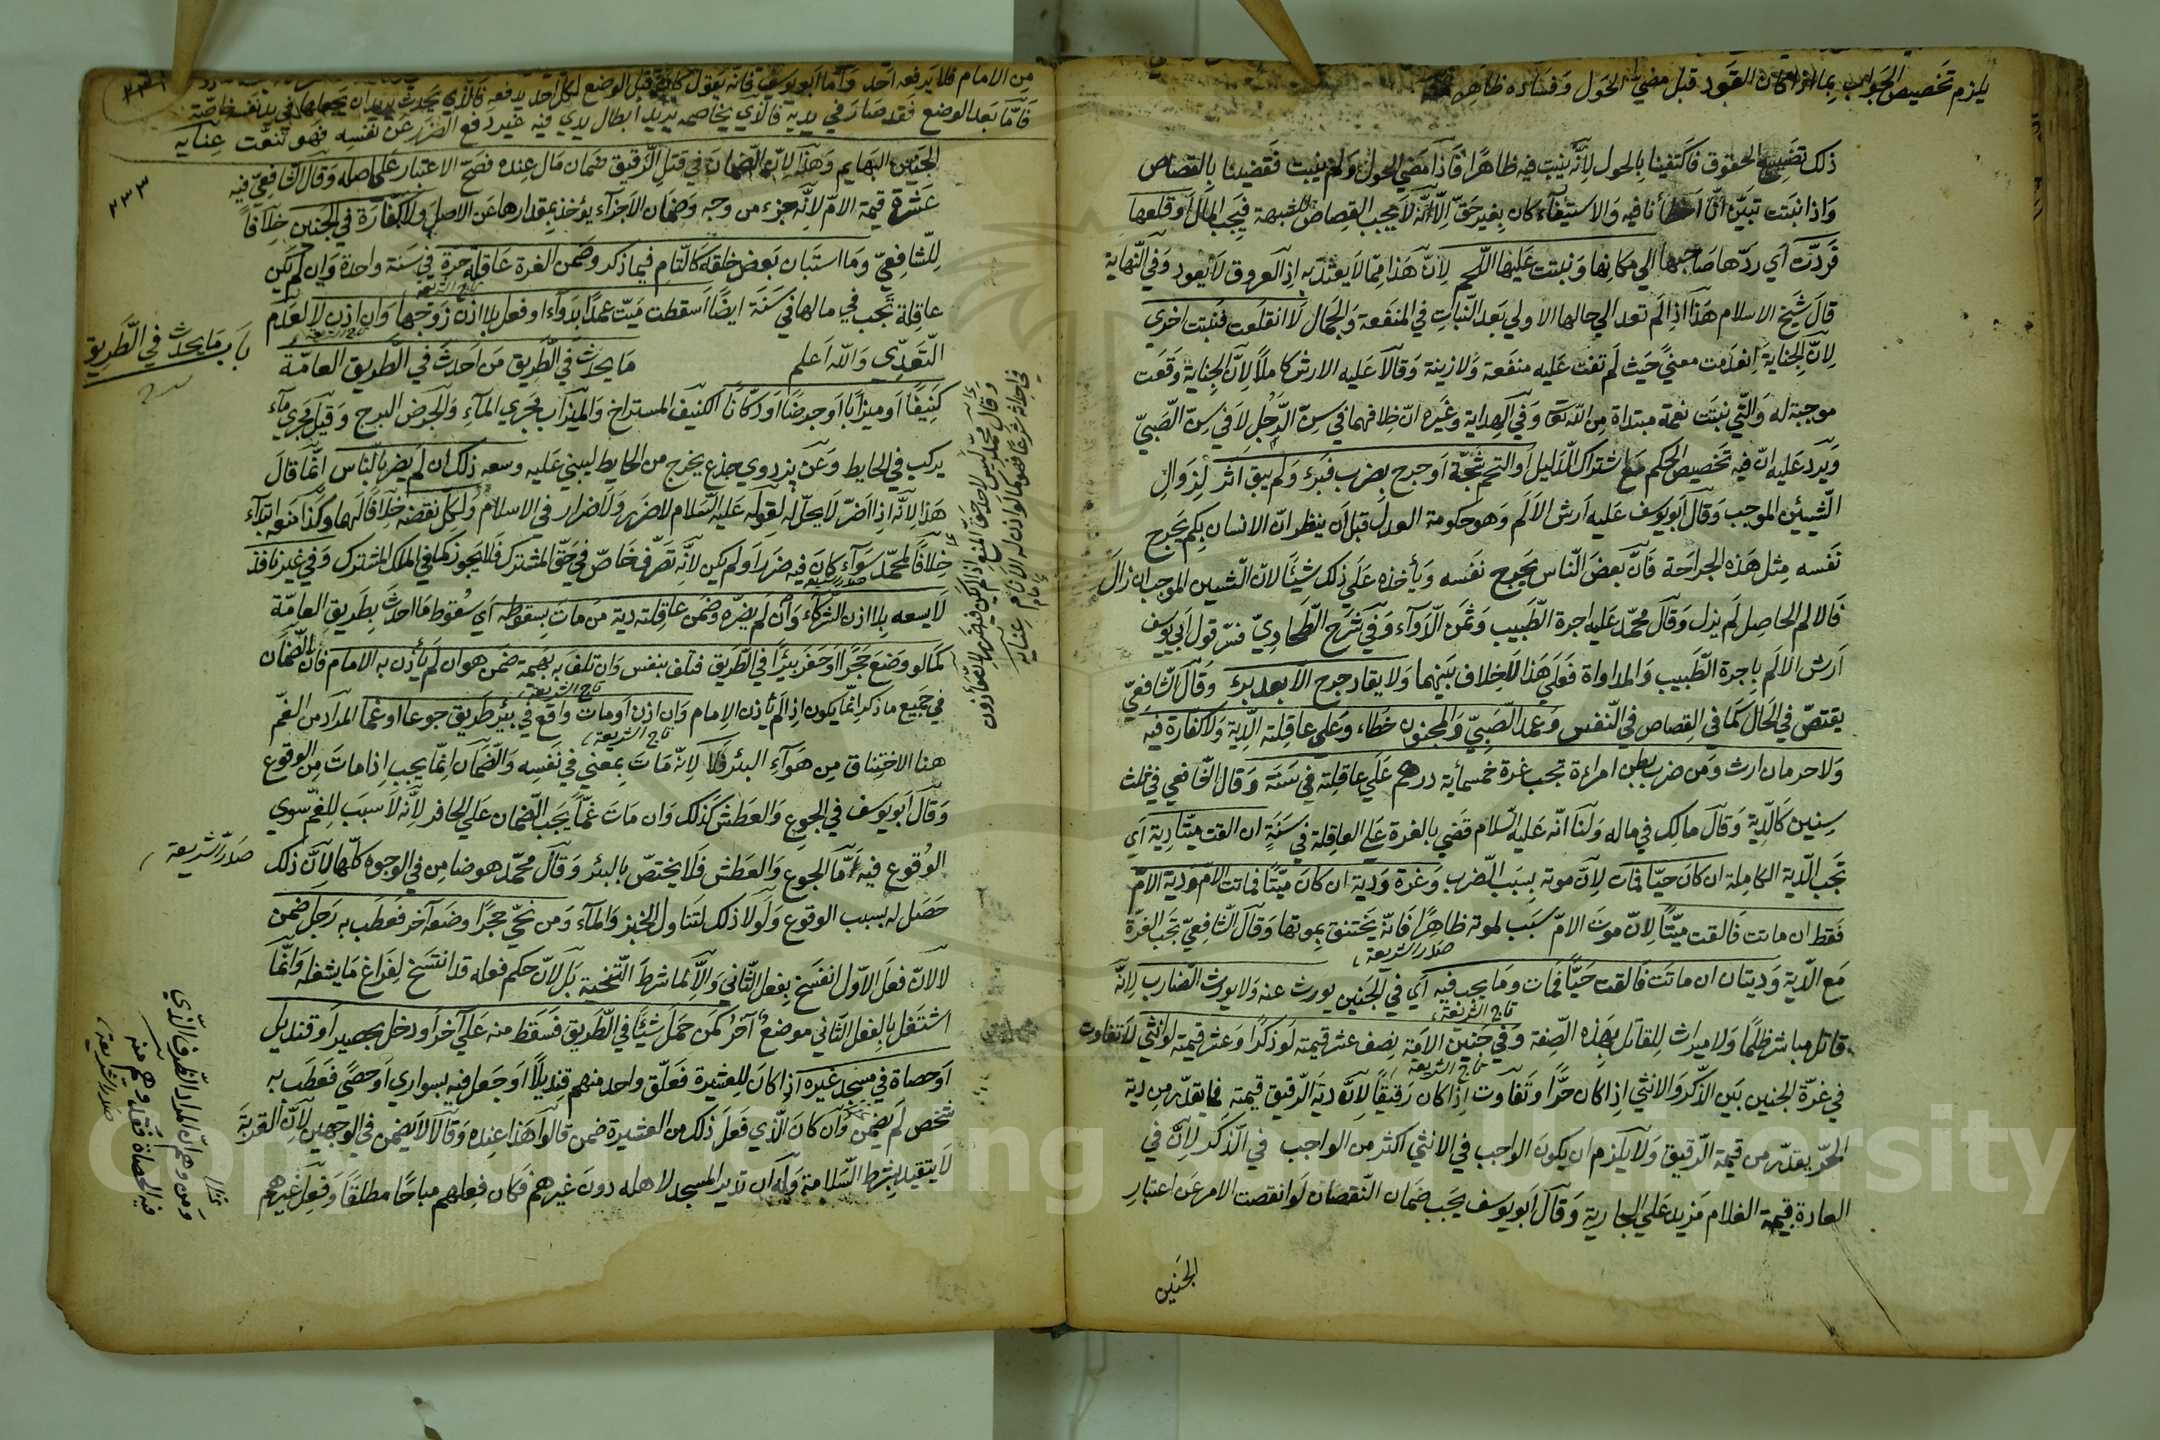 يلزم تخصيص الجواب بما اذا كان القود قبل مضي الحول وفساده ظاهر
ذلك تضييع الحقوق فاكتفينا بالحول لأنه ينبت فيه ظاهرا فاذا مضي الحول ولم ينبت فقضينا بالقصاص
واذا نبتت تبين انا اخطأنا فيه والاستيفاء كان بغير حق الا انه لا يجب القصاص للشبهة فيجب المال او قلعها
فردت اي ردها صاحبها الي مكانها ونبتت عليها اللحم لان هذا مما لا يعتد به اذ العروق لا يعود وفي النهاية
قال شيخ الاسلام هذا اذا لم تعد الي حالها الاولي بعد النبات في المنفعة والجمال لا ان قلعت فنبتت اخري
لان الجناية انعدمت معني حيث لم تفت عليه منفعة ولا زينة وقالا عليه الارش كاملا لان الجناية وقعت
موجبة له والتي نبتت نعمة مبتداة من الله تع وفي الهداية وغيره ان خلافهما في سن الرجل لا في سن الصبي
ويرد عليه ان فيه تخصيص الحكم مع اشتراك الدليل او التحم شجة او جرح بضرب فبرء ولم يبق اثر لزوال
الشين الموجب وقال ابو يوسف عليه ارش الالم وهو حكومة العدل قبل ان ينظر ان الانسان بكم يجرح
نفسه مثل هذه الجراحة فان بعض الناس يجرح نفسه ويأخذه علي ذلك شيئا لان الشين الموجب ان زال
فالالم الحاصل لم يزل وقال محمد عليه اجرة الطبيب وثمن الدواء وفي شرح الطحاوي فسر قول ابي يوسف
ارش الالم باجرة الطبيب والمداواة فعلي هذا لا خلاف بينهما ولا يقاد جرح الا بعد برء وقال الشافعي
يقتص في الحال كما في القصاص في النفس وعمد الصبي والمجنون خطاء وعلي عاقلته الدية ولا كفارة فيه
ولا حرمان ارث ومن ضرب بطن امراءة تجب غرة خمسمأية درهم علي عاقلته في سنة وقال الشافعي في ثلث
سنين كالدية وقال مالك في ماله ولنا انه عليه السلام قضي بالغرة علي العاقلة في سنة ان القت ميتا دية اي
تجب الدية الكاملة ان كان حيا فمات لان موته بسبب الضرب وغرة ودية ان كان ميتا فماتت الام ودية الام
فقط ان ماتت فالقت ميتا لان موت الام سبب لموته ظاهرا فانه يختنق بموتها وقال الشافعي تجب الغرة
صدر الشريعة
مع الدية وديتان ان ماتت فالقت حيا فمات وما يجب فيه اي في الجنين يورث عنه ولا يورث الضارب لانه
تاج الشريعة
قاتل مباشر ظلما ولا ميراث للقاتل بهذه الصفة وفي جنين الامة نصف عشر قيمته لو ذكرا وعشر قيمته لو انثي لا تفاوت
تاج الشريعة
في غرة الجنين بين الذكر والانثي اذا كان حرا وتفاوت اذا كان رقيقا لان دية الرقيق قيمته فما يقدر من دية
الحر يقدر من قيمة الرقيق ولا يلزم ان يكون الواجب في الانثي اكثر من الواجب في الذكر لان في
العادة قيمة الغلام مزيد علي الجارية وقال ابو يوسف يجب ضمان النقصان لو انقصت الام عن اعتبار
الجنين
من الامام فلا يرفعه احد واما ابو يوسف فانه يقول كان قبل الوضع لكل احد يدفعه فالذي يحدث يريد ان يجعلها في يد نفسه خاصة
فاما بعد الوضع فقد صار في يديه فالذي يخاصمه يريد ابطال يدي فيه غير دفع الضرر عن نفسه فهو تعنت عناية
٢٣٣
الجنين البهايم وهذا لان الضمان في قتل الرقيق ضمان مال عنده فصح الاعتبار علي اصله وقال الشافعي فيه
عشر قيمة الام لانه جزء من وجه وضمان الاجزاء يؤخذ بمقدارها عن الاصل ولا كفارة في الجنين خلافا
للشافعي وما استبان بعض خلقه كالتام فيما ذكر وضمن الغرة عاقلة حرة في سنة واحدة وان لم يكن
تاج الشريعة
عاقلة تجب في مالها في سنة ايضا اسقطت ميت عمدا بدواء او فعل بلا اذن زوجها وان اذن لا لعدم
تاج الشريعة
التعدي والله اعلم ما يحدث في الطريق من احدث في الطريق العامة
باب ما يحدث في الطريق
كنيفا او ميزابا او جرصنا او دكانا الكنيف المستراح والميزاب مجري الماء والجرص البرج وقيل مجري ماء
يركب في الحايط وعن بزدوي جذع يخرج من الحايط ليبني عليه وسعه ذلك ان لم يضر بالناس انما قال
هذا لانه اذا اضر لا يحل له لقوله عليه السلام لا ضرر ولا ضرار في الاسلام ولكل نقضه خلافا لهما وكذا منعه ابتداء
خلافا لمحمد سواء كان فيه ضرر او لم يكن لانه تصرف خاص في حق المشترك فلا يجوز كما في الملك المشترك وفي غير نافذ
صدر الشريعة
لا يسعه بلا اذن الشركاء وان لم يضره وضمن عاقلته دية من مات بسقوطه اي سقوط ما احدث بطريق العامة
كما لو وضع حجرا او حفر بيرا في الطريق فتلف بنفس وان تلف به بهيمة ضمن هو ان لم يأذن به الامام فان الضمان
تاج الشريعة
في جميع ما ذكر انما يكون اذا لم يأذن الامام وان اذن او مات واقع في بير طريق جوعا او غما المراد من الغم
تاج الشريعة
هنا الاختناق من هواء البئر فلا لانه مات بمعني في نفسه والضمان انما يجب اذا مات من الوقوع
وقال ابو يوسف في الجوع والعطش كذلك وان مات غما يجب الضمان علي الحافر لانه لا سبب للغم سوي
الوقوع فيه اما الجوع والعطش فلا يختص بالبئر وقال محمد هو ضامن في الوجوه كلها لان ذلك
صدر الشريعة
حصل له بسبب الوقوع ولولا ذلك لتناول الخبز والماء ومن نحي حجرا وضعه آخر فعطب به رجل ضمن
لا لان فعل الاول انفسخ بفعل الثاني والا لما شرط التنحية بل لان حكم فعله قد انتسخ لفراغ ما يشغله وانما
اشتغل بالفعل الثاني موضع آخر كمن حمل شيئا في الطريق فسقط منه علي آخر او دخل بحصير او قنديل
او حصاة في مسجد غيره اذا كان للعشيرة فعلق واحد منهم قنديلا او جعل فيه بسواري او حصي فعطب به
شخص لم يضمن وان كان الذي فعل ذلك من العشيرة ضمن قالوا هذا عنده وقالا لا يضمن في الوجهين لان القربة
لا يتقيد بشرط السلامة وله ان تدبير المسجد لاهله دون غيرهم فكان فعلهم مباحا مطلقا وفعل غيرهم
وقال محمد ليس لاحد حق المنع اذا لم يكن فيه ضرر لانه مأذون
في احداثه شرعا فهو كما لو اذن له الامام عناية
ومن وهم ان المراد الظرف الذي
فيه الحصاة فقد وهم منه
صدر الشريعة
Copyright © King Saud University